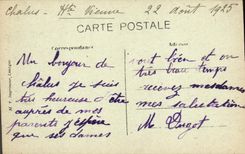 Chalus - Hte Vienne 22 Août 1925
CARTE POSTALE
Correspondance
Adresse
Un bonjour de
châlus je suis
très heureuse d'être
auprès de mes
parents j'espère
que ses dames
ont bien et on
très beau temps
recevez mesdames
mes salutation
M